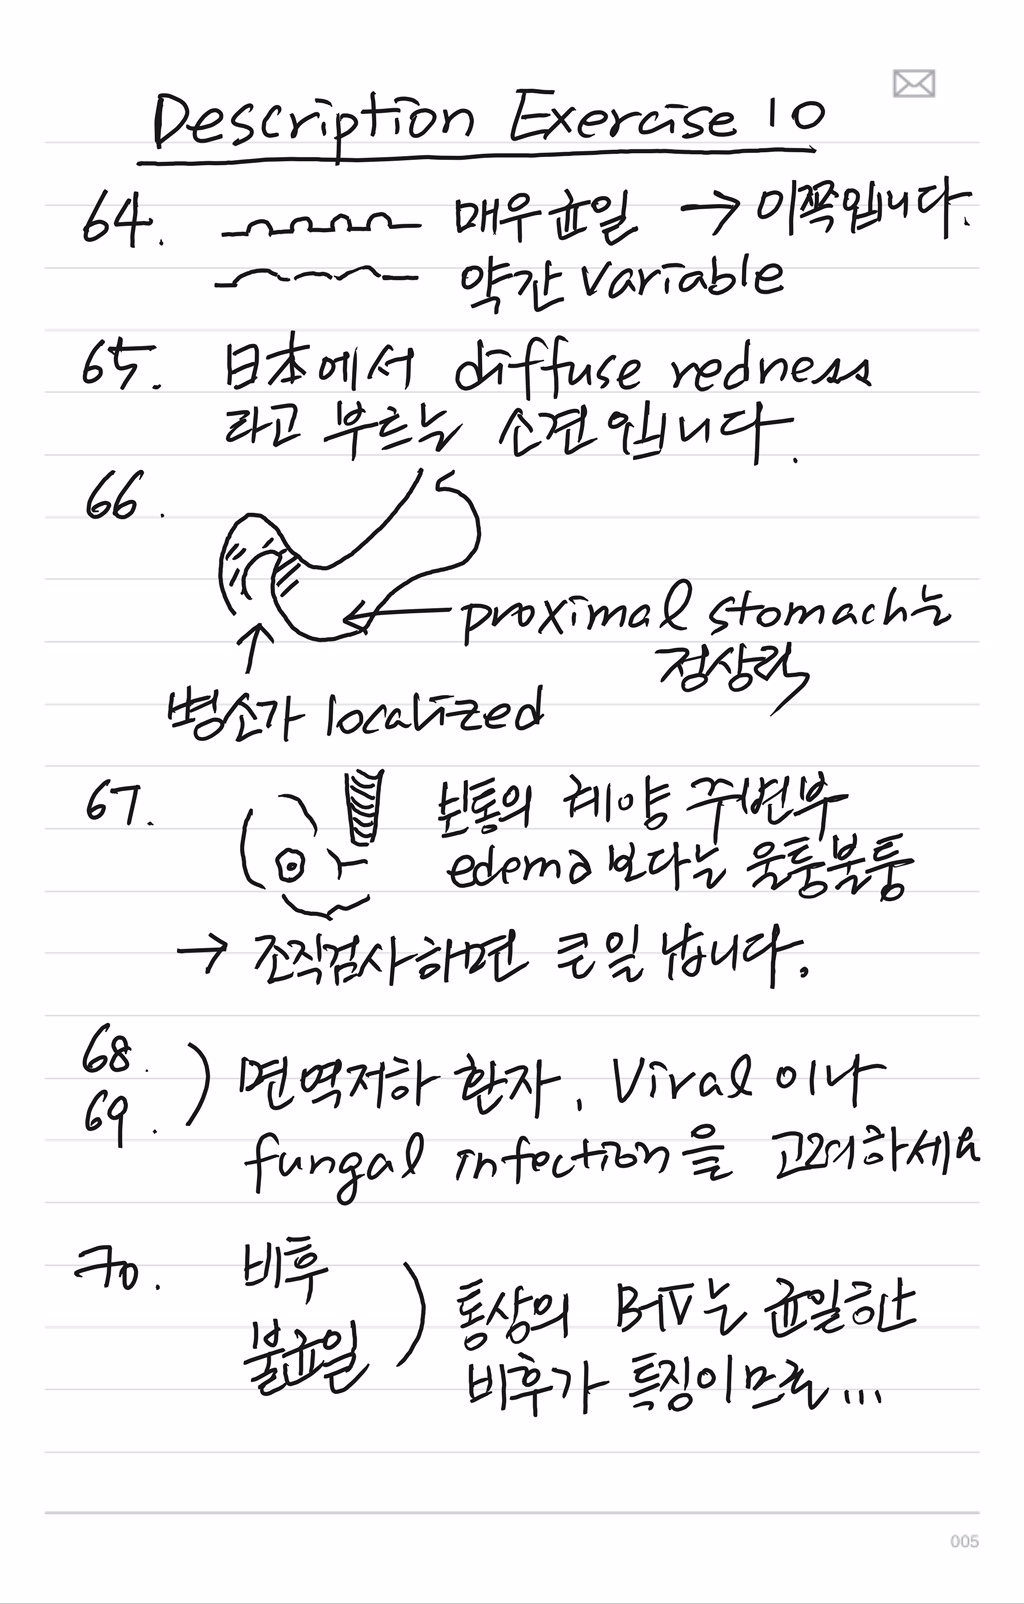 Description Exercise 10
64. 매우 균일 → 이쪽입니다.
약간 variable
65. 日本에서 diffuse redness
라고 부르는 소견입니다.
66.
← proximal stomach는
정상적
↑
병소가 localized
67. 보통의 궤양 주변부
edema보다는 울퉁불퉁
→ 조직검사하면 큰일 납니다.
68. 69. ) 면역저하 환자. Viral이나
fungal infection을 고려하세요
70. 비후
불균일 ) 통상의 B-IV는 균일한
비후가 특징이므로...
005